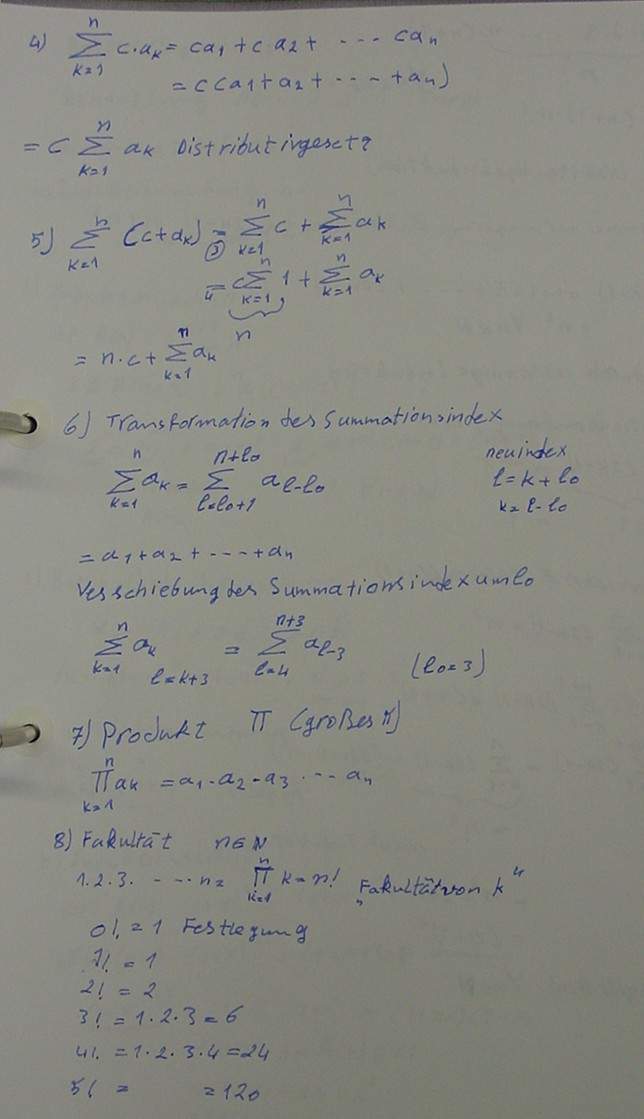 4) ∑_{k=1}^{n} c·a_k = ca_1 + ca_2 + ---- ca_n
= c(a_1 + a_2 + ---- + a_n)
= c ∑_{k=1}^{n} a_k Distributivgesetz
5) ∑_{k=1}^{n} (c+a_k) =_{③} ∑_{k=1}^{n} c + ∑_{k=1}^{n} a_k
=_{4} c∑_{k=1}^{n} 1 + ∑_{k=1}^{n} a_k
n
= n·c + ∑_{k=1}^{n} a_k
6) Transformation des Summationsindex
neuindex
∑_{k=1}^{n} a_k = ∑_{l=l_0+1}^{n+l_0} a_{l-l_0} l = k + l_0
k = l - l_0
= a_1 + a_2 + ---- + a_n
Verschiebung des Summationsindex um l_0
∑_{k=1}^{n} a_k = ∑_{l=4}^{n+3} a_{l-3} (l_0=3)
l=k+3
7) Produkt Π (großes π)
∏_{k=1}^{n} a_k = a_1 · a_2 · a_3 ··· a_n
8) Fakultät n∈N
1.2.3. ---- n = ∏_{k=1}^{n} k = n! „Fakultät von k"
0! = 1 Festlegung
1! = 1
2! = 2
3! = 1·2·3 = 6
4! = 1·2·3·4 = 24
5! = = 120